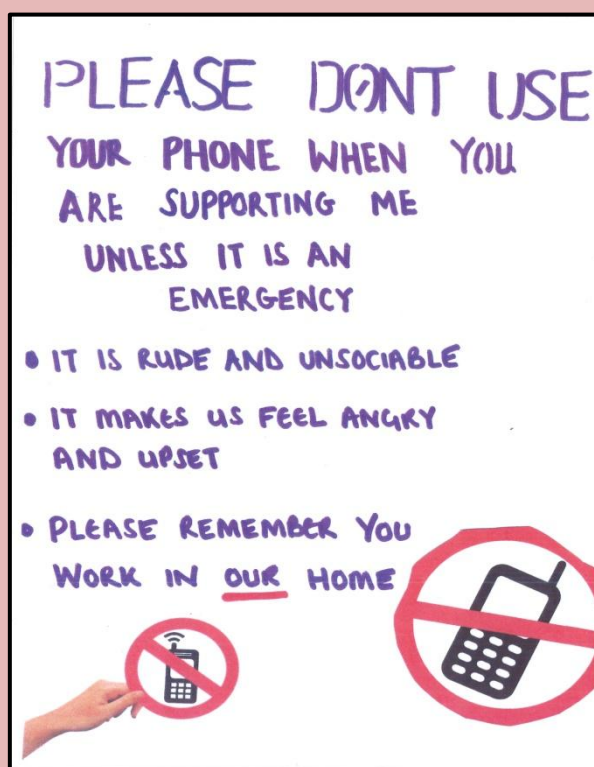 PLEASE DONT USE
YOUR PHONE WHEN YOU
ARE SUPPORTING ME
UNLESS IT IS AN
EMERGENCY
• IT IS RUDE AND UNSOCIABLE
• IT MAKES US FEEL ANGRY
AND UPSET
• PLEASE REMEMBER YOU
WORK IN OUR HOME